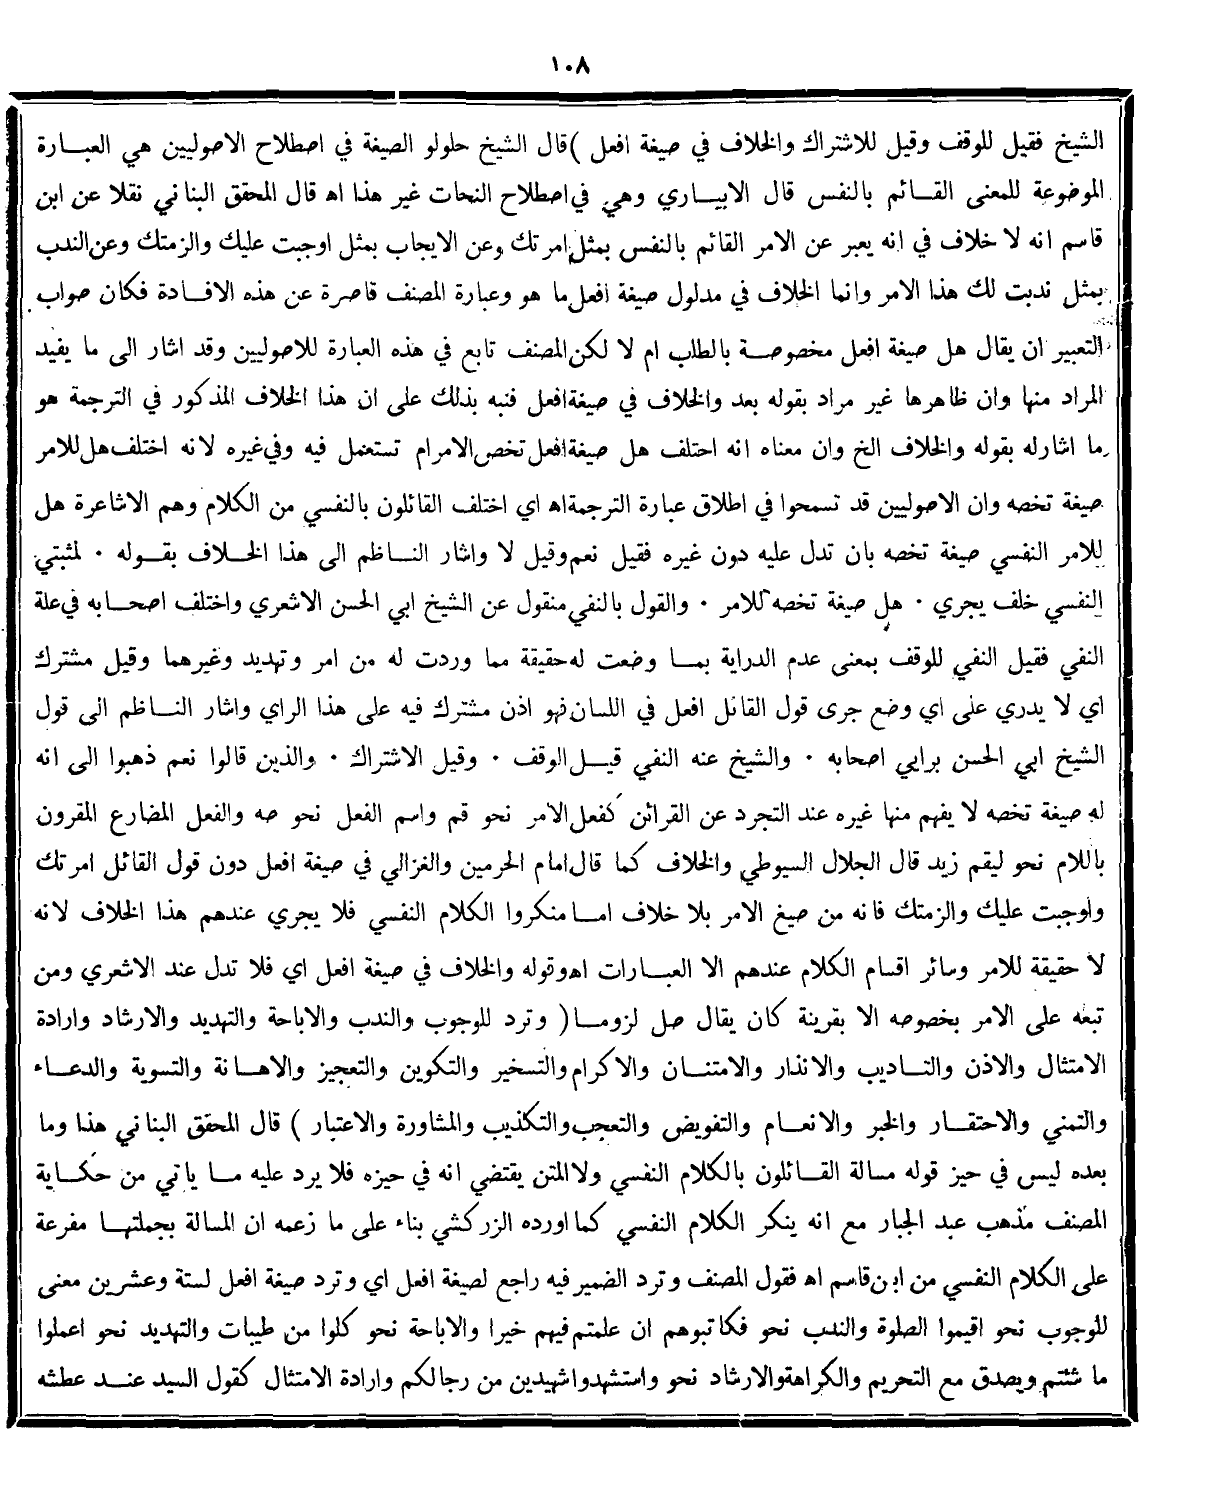 ١٠٨
الشيخ فقيل للوقف وقيل للاشتراك والخلاف في صيغة افعل )قال الشيخ حلولو الصيغة في اصطلاح الاصوليين هي العبـارة
الموضوعة للمعنى القـائم بالنفس قال الابيـاري وهي في اصطلاح النحات غير هذا اه قال المحقق البناني نقلا عن ابن
قاسم انه لا خلاف في انه يعبر عن الامر القائم بالنفس بمثل امرتك وعن الايجاب بمثل اوجبت عليك والزمتك وعن الندب
بمثل ندبت لك هذا الامر وانما الخلاف في مدلول صيغة افعل ما هو وعبارة المصنف قاصرة عن هذه الافـادة فكان صواب
التعبير ان يقال هل صيغة افعل مخصوصـة بالطلب ام لا لكن المصنف تابع في هذه العبارة للاصوليين وقد اشار الى ما يفيد
المراد منها وان ظاهرها غير مراد بقوله بعد والخلاف في صيغة افعل فنبه بذلك على ان هذا الخلاف المذكور في الترجمة هو
ما اشارله بقوله والخلاف الخ وان معناه انه احتلف هل صيغة افعل تخص الامر ام تستعمل فيه وفي غيره لانه اختلف هل للامر
صيغة تخصه وان الاصوليين قد تسمحوا في اطلاق عبارة الترجمة اه اي اختلف القائلون بالنفسي من الكلام وهم الاشاعرة هل
للامر النفسي صيغة تخصه بان تدل عليه دون غيره فقيل نعم وقيل لا واشار النـاظم الى هذا الخـلاف بقـوله ٠ لمثبتي
النفسي خلف يجري ٠ هل صيغة تخصه للامر ٠ والقول بالنفي منقول عن الشيخ ابي الحسن الاشعري واختلف اصحـابه في علة
النفي فقيل النفي للوقف بمعنى عدم الدراية بمـا وضعت له حقيقة مما وردت له من امر وتهديد وغيرهما وقيل مشترك
اي لا يدري على اي وضع جرى قول القائل افعل في اللسان فهو اذن مشترك فيه على هذا الراي واشار النـاظم الى قول
الشيخ ابي الحسن برايي اصحابه ٠ والشيخ عنه النفي قيـل الوقف ٠ وقيل الاشتراك ٠ والذين قالوا نعم ذهبوا الى انه
له صيغة تخصه لا يفهم منها غيره عند التجرد عن القرائن كفعل الامر نحو قم واسم الفعل نحو صه والفعل المضارع المقرون
باللام نحو ليقم زيد قال الجلال السيوطي والخلاف كما قال امام الحرمين والغزالي في صيغة افعل دون قول القائل امرتك
واوجبت عليك والزمتك فانه من صيغ الامر بلا خلاف امـا منكروا الكلام النفسي فلا يجري عندهم هذا الخلاف لانه
لا حقيقة للامر وسائر اقسام الكلام عندهم الا العبـارات اه وقوله والخلاف في صيغة افعل اي فلا تدل عند الاشعري ومن
تبعه على الامر بخصوصه الا بقرينة كان يقال صل لزومـا ( وترد للوجوب والندب والاباحة والتهديد والارشاد وارادة
الامتثال والاذن والتـاديب والانذار والامتنـان والاكرام والتسخير والتكوين والتعجيز والاهـانة والتسوية والدعـاء
والتمني والاحتقـار والخبر والانعـام والتفويض والتعجب والتكذيب والمشاورة والاعتبار ) قال المحقق البناني هذا وما
بعده ليس في حيز قوله مسالة القـائلون بالكلام النفسي ولا المتن يقتضي انه في حيزه فلا يرد عليه مـا ياتي من حكـاية
المصنف مذهب عبد الجبار مع انه ينكر الكلام النفسي كما اورده الزركشي بناء على ما زعمه ان المسالة بجملتهـا مفرعة
على الكلام النفسي من ابن قاسم اه فقول المصنف وترد الضمير فيه راجع لصيغة افعل اي وترد صيغة افعل لستة وعشرين معنى
للوجوب نحو اقيموا الصلوة والندب نحو فكاتبوهم ان علمتم فيهم خيرا والاباحة نحو كلوا من طيبات والتهديد نحو اعملوا
ما شئتم ويصدق مع التحريم والكراهة والارشاد نحو واستشهدوا شهيدين من رجالكم وارادة الامتثال كقول السيد عنـد عطشه